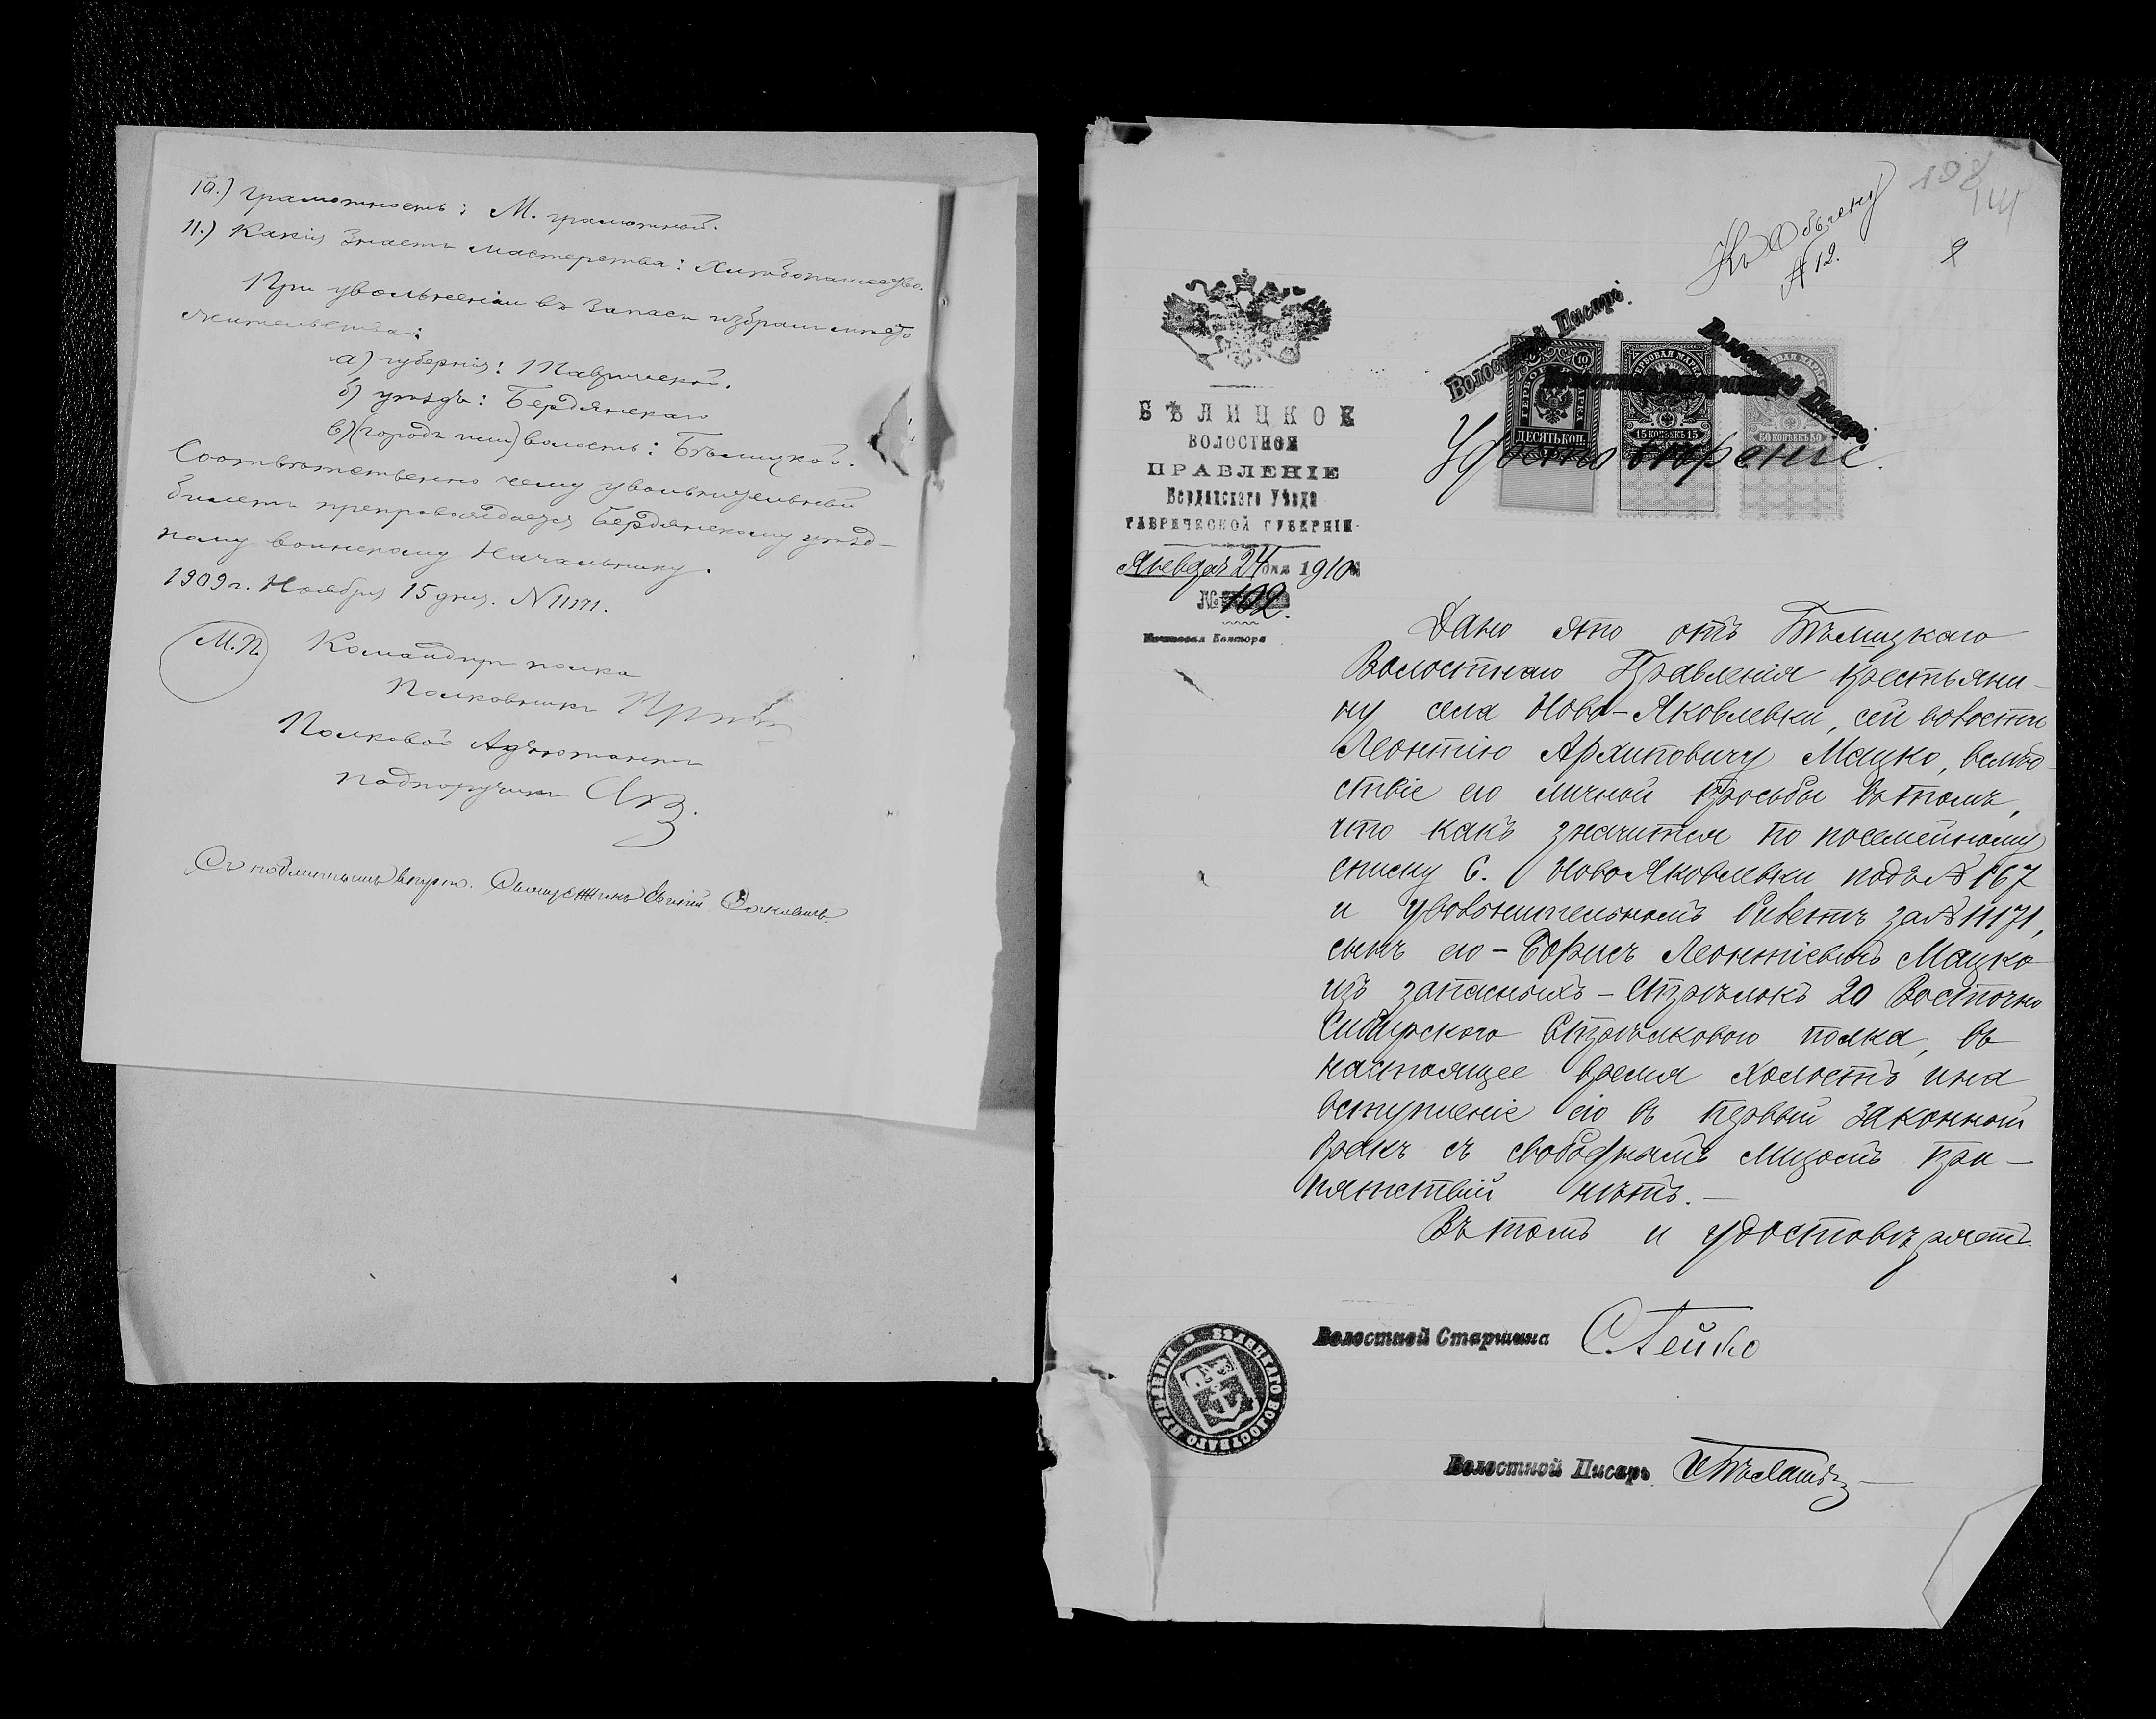 10.) Грамотность: М. грамотный.
11.) Какія знаетъ мастерства: Хлѣбопашество.
При увольненіи въ запасъ избралъ мѣсто
жительства:
а) губернія: Таврической.
б) уѣздъ: Бердянскаго
в) (городъ или) волость: Бѣлицкой.
Соотвѣтственно чему увольнительный
билетъ препровождается Бердянскому уѣзд-
ному воинскому Начальнику.
1909 г. Ноября 15 дня. N 11171.
М.П. Командиръ полка
Полковникъ
Полковой Адъютантъ
подпоручикъ
Съ подлиннымъ вѣрно. Священникъ
198
Къ Обыску
№ 12.
Волостной Писарь.
Волостной Писарь.
10
ДЕСЯТЬ КОП.
ГЕРБОВАЯ МАРКА
15 КОПѢЕКЪ 15
ГЕРБОВАЯ МАРКА
50 КОПѢЕКЪ 50
БѢЛИЦКОЕ
ВОЛОСТНОЕ
ПРАВЛЕНІЕ
Бердянскаго Уѣзда
ТАВРИЧЕСКОЙ ГУБЕРНІИ
Января 24 дня 1910
№ 102.
Почтовая Контора
Удостовѣреніе.
Дано это отъ Бѣлицкаго
Волостнаго Правленія крестьяни-
ну села Ново-Яковлевки, сей волости
Леонтію Архиповичу Мацко, вслѣд-
ствіе его личной просьбы въ томъ,
что какъ значится по посемейному
списку с. НовоЯковлевки подъ № 167
и увольнительномъ билетѣ за № 11171,
сынъ его - Борисъ Леонтіевичъ Мацко
изъ запасныхъ - Стрѣлокъ 20 Восточно
Сибирского Стрѣлковаго полка, въ
настоящее время холостъ и на
вступленіе его въ первый законный
бракъ съ свободнымъ лицомъ пре-
пятствій нѣтъ. -
Въ томъ и удостовѣряетъ.
Волостной Старшина
Волостной Писарь
БѢЛИЦКАГО ВОЛОСТНАГО ПРАВЛЕНІЯ